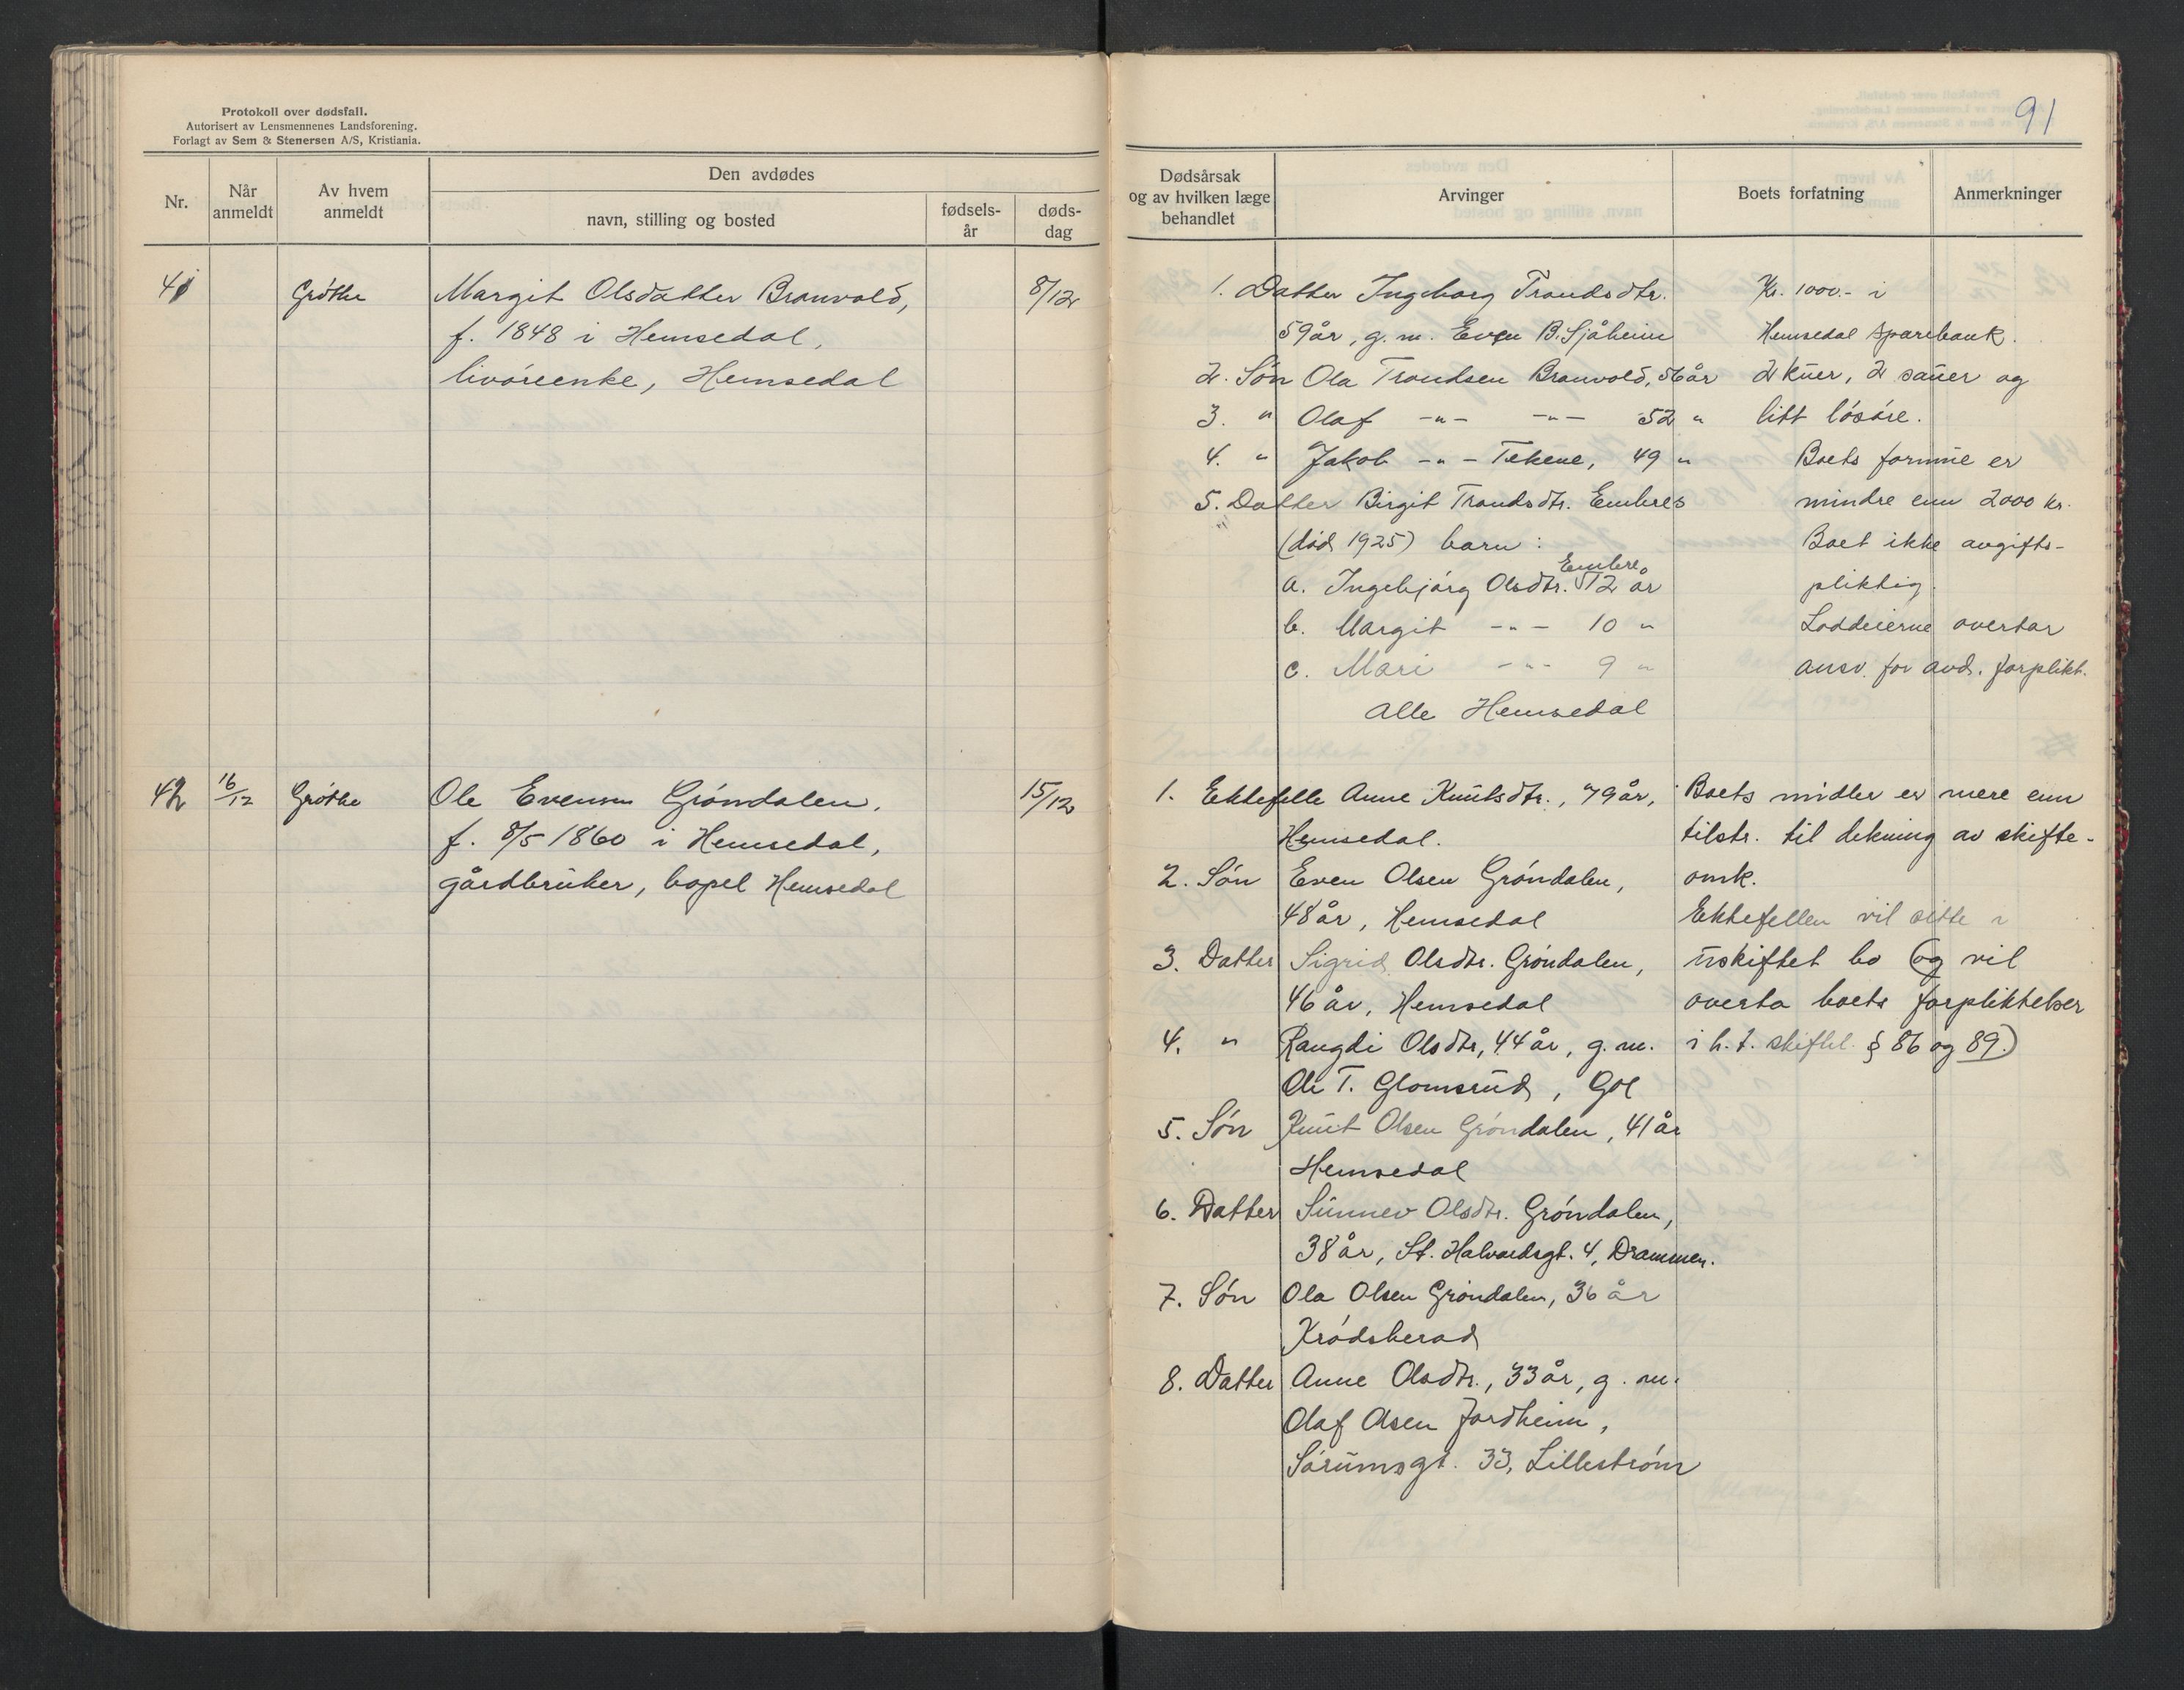 Protokoll over dødsfall.
Autorisert av Lensmennenes Landsforening.
Forlagt av Sem & Stenersen A/S, Kristiania.
Nr.
Når anmeldt
Av hvem anmeldt
Den avdødes
navn, stilling og bosted
fødsels-år
døds-dag
41 Grøthe Margit Olsdatter Branvold, 8/12
f. 1848 i Hemsedal,
livøreenke, Hemsedal
42 16/12 Grøthe Ole Evensen Grøndalen, 15/12
f. 8/5 1860 i Hemsedal,
gårdbruker, bopel Hemsedal
91
Dødsårsak
og av hvilken læge
behandlet
Arvinger
Boets forfatning
Anmerkninger
1. Datter Ingeborg Trondsdtr.
59 år, g. m. Even B. Sjåheim
2. Søn Ola Trondsen Branvold, 56 år
3. " Olaf -"- -"- 52 "
4. " Jakob -"- Tekene, 49 "
5. Datter Birgit Trondsdtr. Embres
(død 1925) barn:
a. Ingebjørg Olsdtr. Embre, 12 år
b. Margit -"- 10 "
c. Mari -"- 9 "
Alle Hemsedal
Kr. 1000.- i
Hemsedal Sparebank.
2 kuer, 2 sauer og
litt løsøre.
Boets formue er
mindre enn 2000 kr.
Boet ikke avgifts-
pliktig.
Loddeierne overtar
ansv. for avd. forplikt.
1. Ektefelle Anne Knutsdtr., 79 år,
Hemsedal.
2. Søn Even Olsen Grøndalen,
48 år, Hemsedal
3. Datter Sigrid Olsdtr. Grøndalen,
46 år, Hemsedal
4. " Rangdi Olsdtr, 44 år, g. m.
Ole T. Glomsrud, Gol
5. Søn Knut Olsen Grøndalen, 41 år
Hemsedal
6. Datter Sunnev Olsdtr. Grøndalen,
38 år, St. Halvardsgt. 4, Drammen.
7. Søn Ola Olsen Grøndalen, 36 år
Krødsherad
8. Datter Anne Olsdtr., 33 år, g. m.
Olaf Olsen Jordheim,
Sørumsgt. 33, Lillestrøm
Boets midler er mere enn
tilstr. til dekning av skifte-
omk.
Ektefellen vil sitte i
uskiftet bo (og vil
overta boets forpliktelser
i h. t. skiftel. § 86 og 89.)